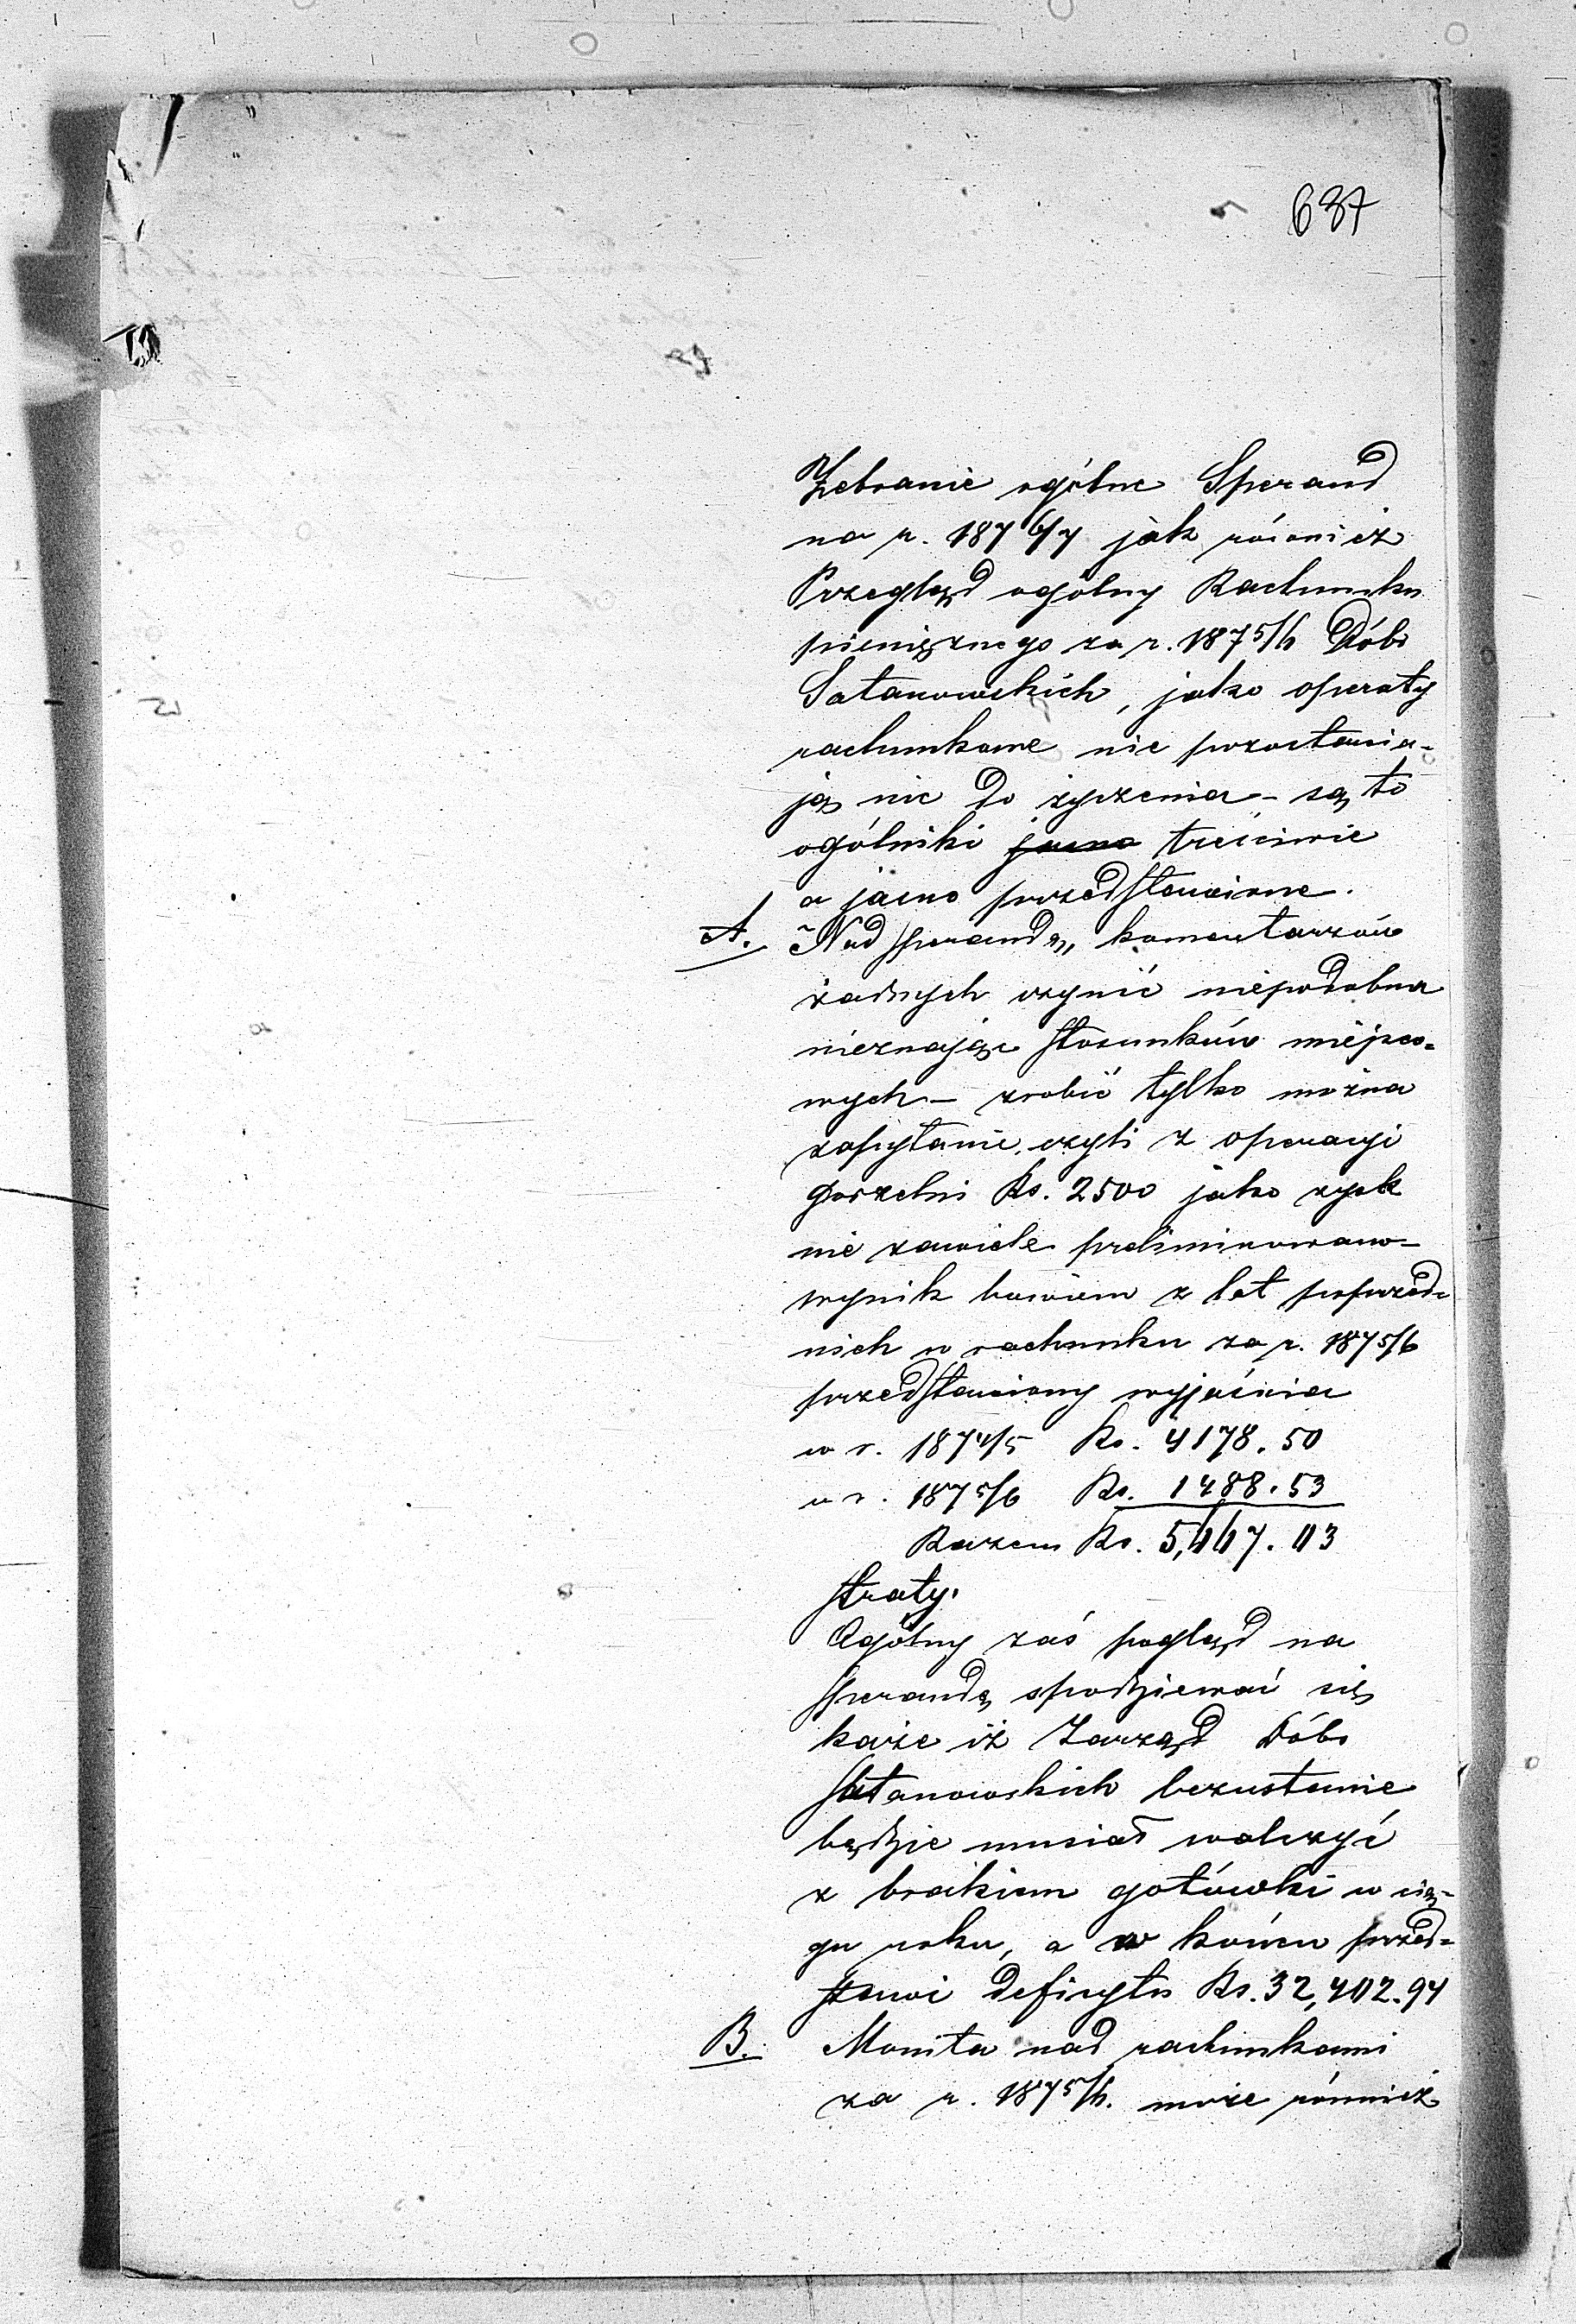 637
Zebranie ogólne Sperand
na r. 1876/7 jak również
Przegląd ogólny Rachunku
pieniężnego za r. 1875/6 Dóbr
Satanowskich, jako operaty
rachunkowe nie pozostawia-
ją nic do życzenia – są to
ogólniki jasno treściwie
a jasno przedstawione.
A. Nad sperandą, komentarzów
żadnych czynić niepodobna
nieznając stosunków miejsco-
wych – zrobić tylko można
zapytanie, czyli z operacyi
gorzelni Rs. 2500 jako zysk
nie zawiele preliminowano –
wynik bowiem z lat poprzed-
nich w rachunku za r. 1875/6
przedstawiony wyjaśnia
w r. 1874/5 Rs. 4178.50
w r. 1875/6 Rs. 1488.53
Razem Rs. 5,667.03
straty.
Ogólny zaś pogląd na
sperandę spodziewać się
każe iż Zarząd Dóbr
Satanowskich bezustannie
będzie musiał walczyć
z brakiem gotówki w cią-
gu roku, a w końcu przed-
stawi deficytu Rs. 32,402.94
B. Monita nad rachunkami
za r. 1875/6. może również